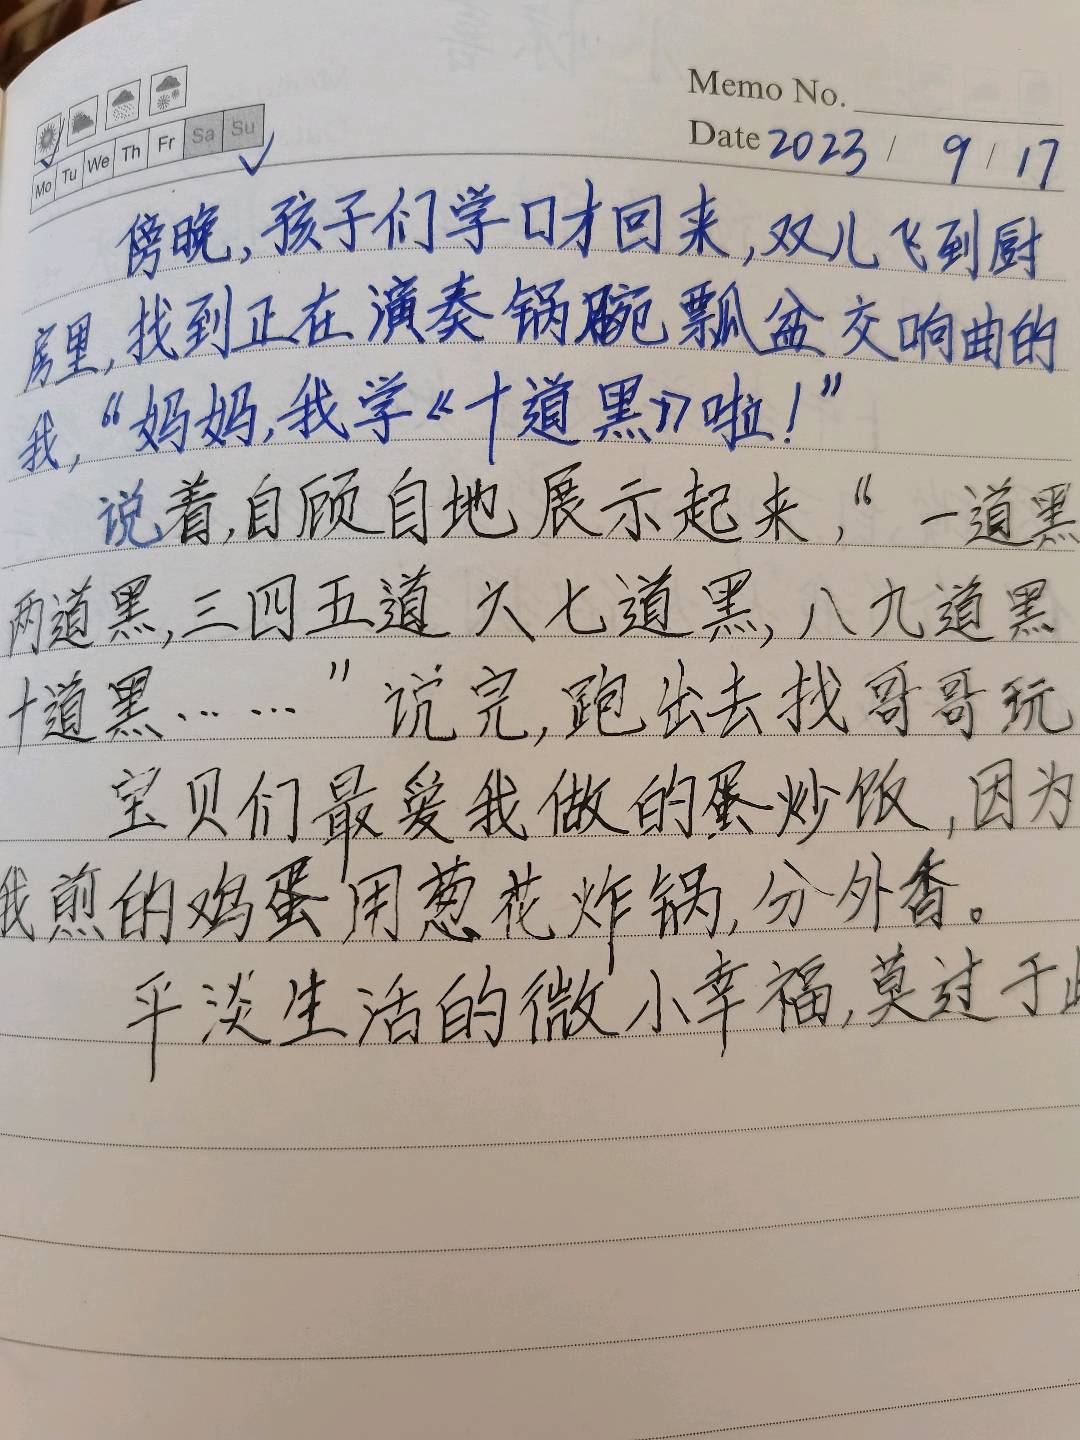 Memo No.
Mo Tu We Th Fr Sa Su
Date 2023 / 9 / 17
傍晚,孩子们学口才回来,双儿飞到厨
房里,找到正在演奏锅碗瓢盆交响曲的
我,“妈妈,我学《十道黑》啦!”
说着,自顾自地展示起来,“一道黑
两道黑,三四五道六七道黑,八九道黑
十道黑……”说完,跑出去找哥哥玩
宝贝们最爱我做的蛋炒饭,因为
我煎的鸡蛋用葱花炸锅,分外香。
平淡生活的微小幸福,莫过于